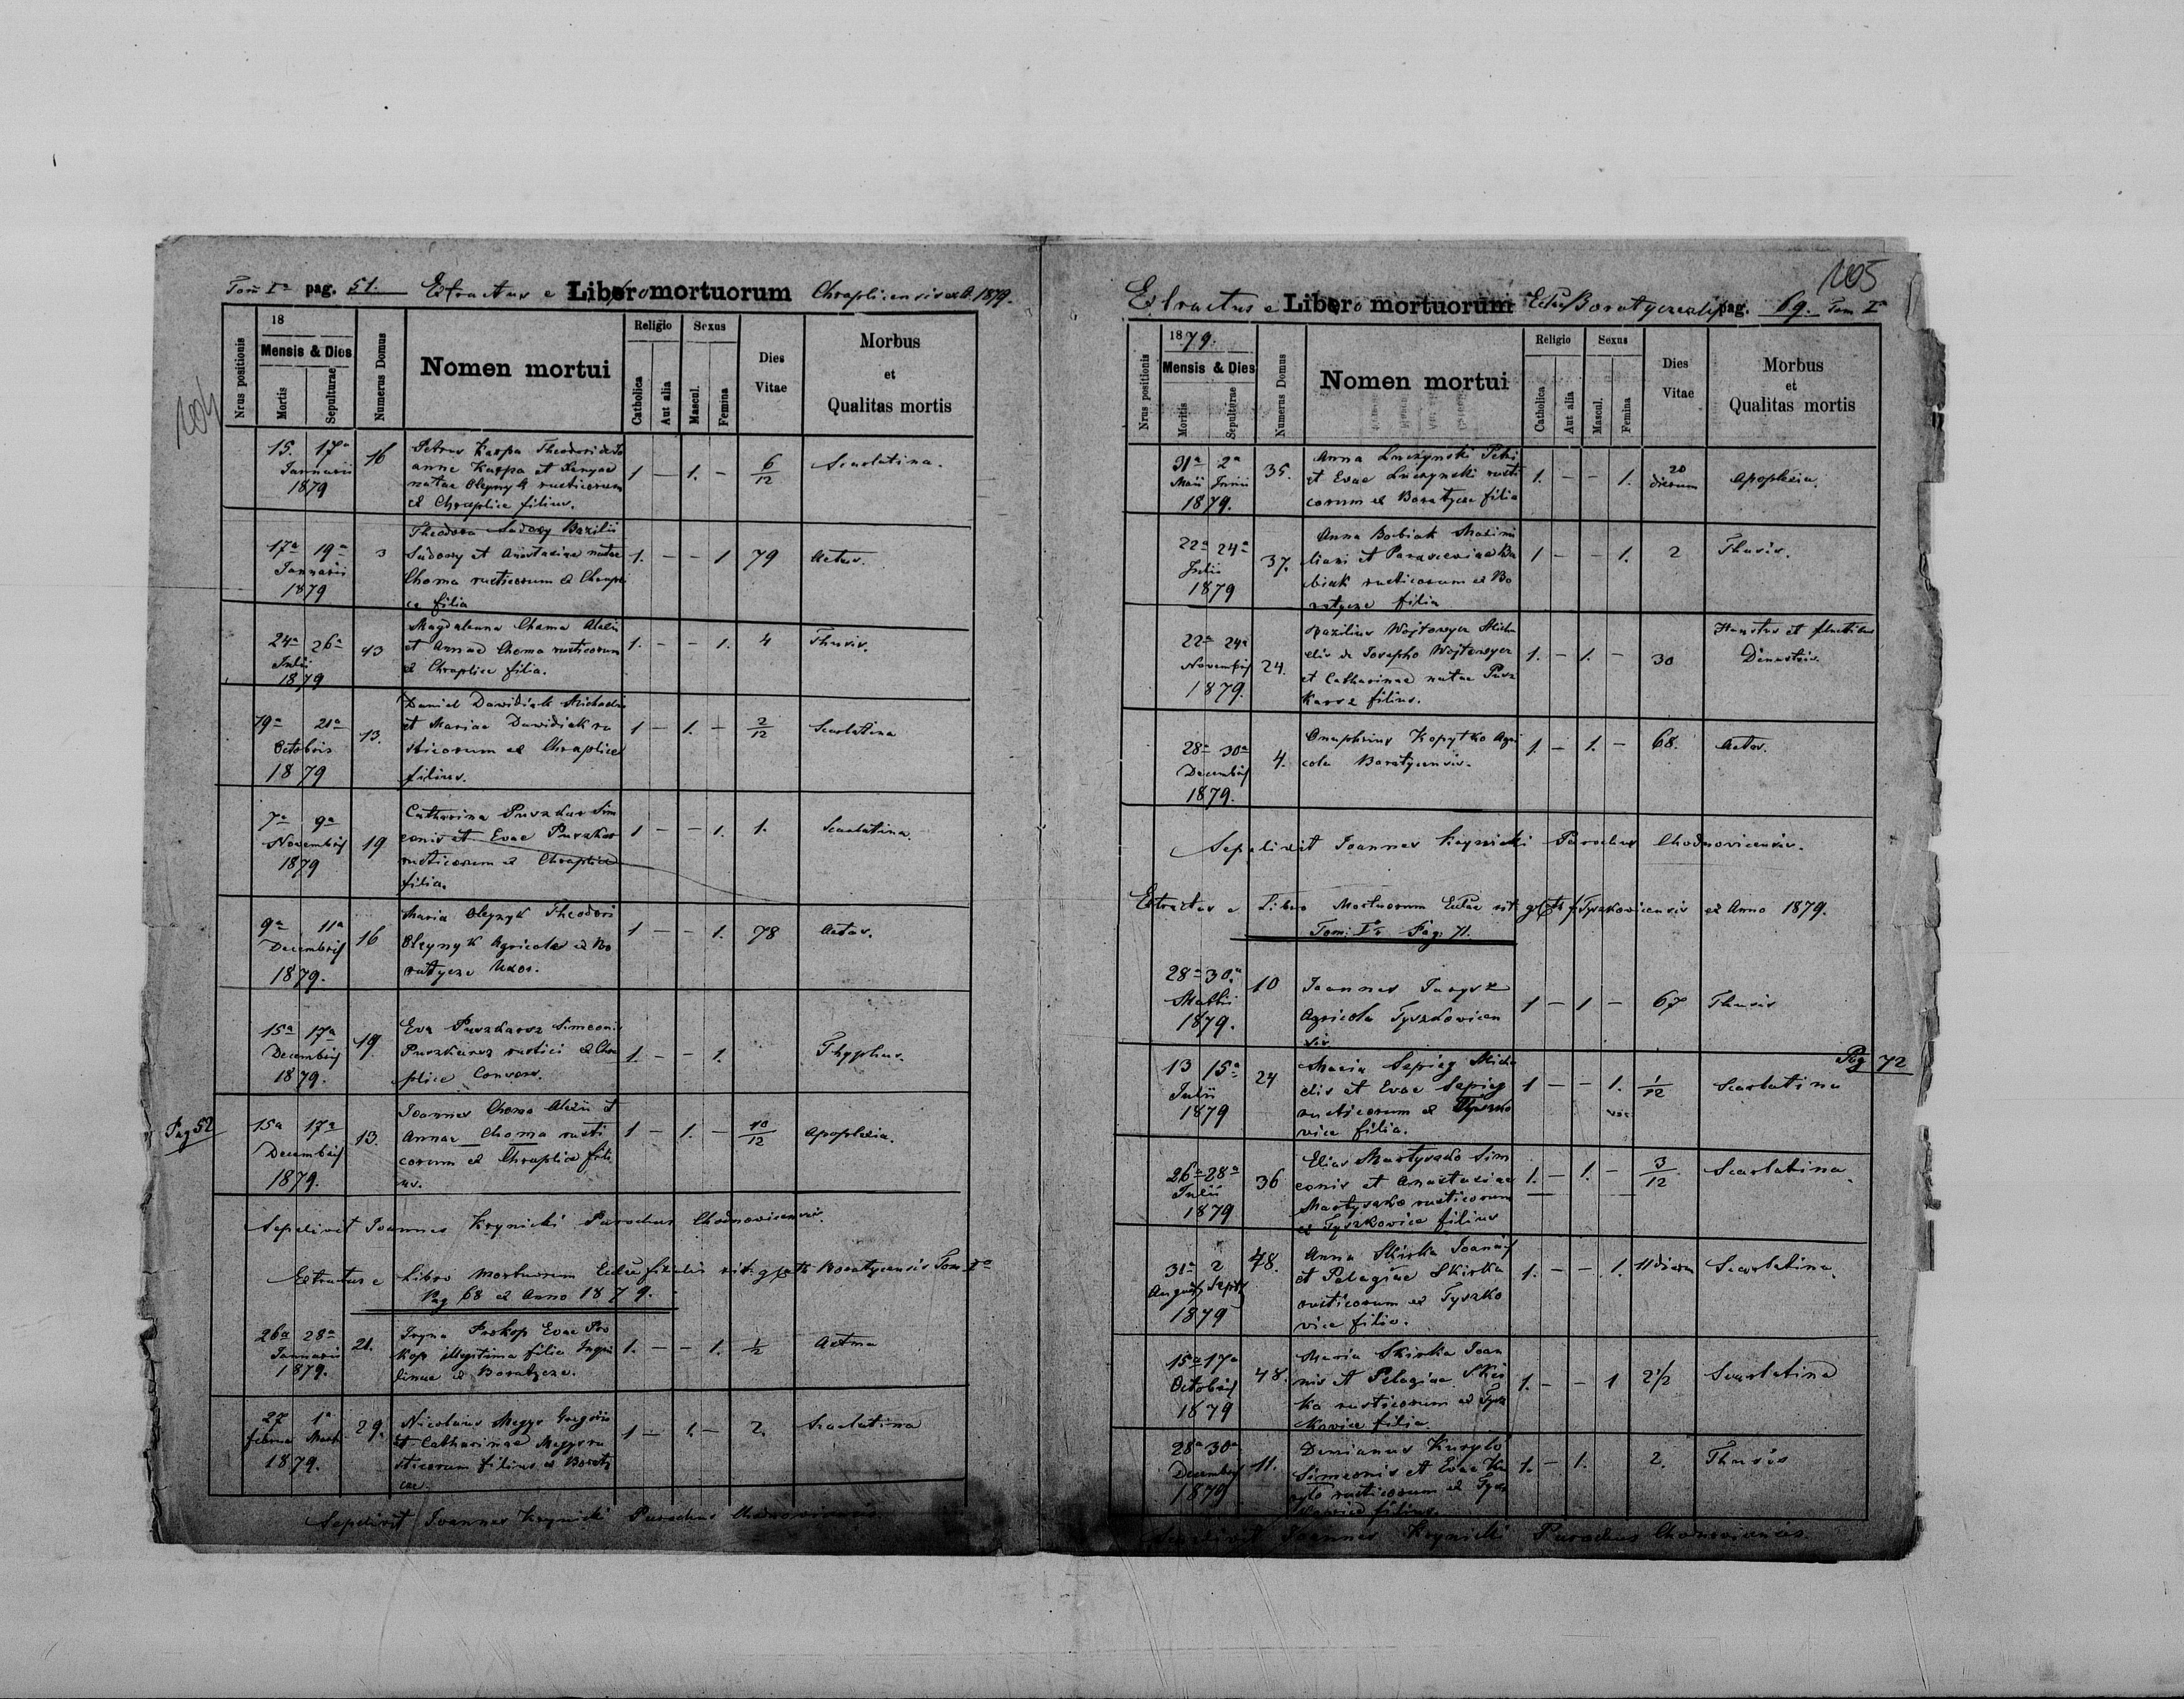 104
Tom I^o pag. 51. Extractus e Libro mortuorum Chraplicensis ex A. 1879.
Nrus positionis
18
Mensis & Dies
Mortis
Sepulturae
Numerus Domus
Nomen mortui
Religio
Catholica
Aut alia
Sexus
Mascul.
Femina
Dies
Vitae
Morbus
et
Qualitas mortis
15. 17^a
Januarii
1879
16
Petrus Karpa Theodori de Jo
anne Karpa et
natae Oleynyk rusticorum
ex Chraplice filius.
1 — 1. — 6/12 Scarlatina.
17^a 19^a
Januarii
1879
3
Theodora Sudory Bazilii
Sudory et Anastasiae natae
Choma rusticorum ex Chrapli
ce filia
1. — — 1 79 Aetas.
24^a 26^a
Julii
1879
43
Magdalena Choma Alexii
et Annae Choma rusticorum
ex Chraplice filia.
1. — — 1. 4 Thusis.
19^a 21^a
Octobris
1879
13.
Daniel Dawidiak Michaelis
et Mariae Dawidiak ru
sticorum ex Chraplice
filius.
1 — 1. — 2/12 Scarlatina
7^a 9^a
Novembris
1879
19
Catharina Puszkar Sim
eonis et Evae Puszkar
rusticorum ex Chraplice
filia.
1 — — 1. 1. Scarlatina.
9^a 11^a
Decembris
1879.
16
Maria Oleynyk Theodori
Oleynyk Agricolae ex Bo
ratycze Uxor.
1 — — 1. 78 Aetas.
15^a 17^a
Decembris
1879.
19.
Eva Puszkarz Simeonis
Puszkarz rustici ex Chra
plice Consors.
1. — — 1. Thyphus.
Pag 52
15^a 17^a
Decembris
1879.
13.
Joannes Choma Alexii et
Annae Choma rusti
corum ex Chraplice fili
us.
1 — 1. — 10/12 Apoplexia.
Sepelivit Joannes Krynicki Parochus Chodnovicensis.
Extractus e Libro Mortuorum Eclae filialis rit. gr. cath Boratycensis Tom I^o
Pag 68 ex Anno 1879.
26^a 28^a
Januarii
1879.
21.
Iryna Prokop Evae Pro
kop illegitima filia Inqui
linae ex Boratycze.
1. — — 1. 1/2 Astma
27 1^a
Februa Martii
1879.
29.
Nicolaus Megys Gregorii
et Catharinae Megys ru
sticorum filius ex Boraty
cze.
1 — 1. — 2. Scarlatina
Sepelivit Joannes Krynicki Parochus Chodnovicensis.
105
Extractus e Libro mortuorum Eclae Boratycensis pag. 69. Tom I^o
Nrus positionis
1879.
Mensis & Dies
Moritis
Sepulturae
Numerus Domus
Nomen mortui
Religio
Catholica
Aut alia
Sexus
Mascul.
Femina
Dies
Vitae
Morbus
et
Qualitas mortis
31^a 2^a
Maii Junii
1879.
35.
Anna Luczynski Petri
et Evae Luczynski rusti
corum ex Boratycze filia
1. — — 1. 20 dierum Apoplexia.
22^a 24^a
Julii
1879
37.
Anna Babiak Maximi
liani et Parasceviae Ba
biak rusticorum ex Bo
ratycze filia
1 — — 1. 2 Thusis.
22^a 24^a
Novembris
1879.
24.
Bazilius Wojtowycz Micha
elis de Josepho Wojtowycz
et Catharinae natae Pusz
karz filius.
1. — 1. — 30
28^a 30^a
Decembris
1879.
4.
Onuphrius Kopytko Agri
cola Boratycensis.
1. — 1. — 68. Aetas.
Sepelivit Joannes Krynicki Parochus Chodnovicensis.
Extractus e Libro Mortuorum Eclae rit. gr. cth f. Tyszkovicensis ex Anno 1879.
Tom: I^o Pag: 71.
28^a 30^a
Martii
1879.
10
Joannes
Agricola Tyszkovicen
sis
1 — 1 — 67 Thusis
Pag 72
13 15^a
Julii
1879
24
Maria Sapieg Micha
elis et Evae Sapieg
rusticorum ex Tyszko
vice filia.
1 — — 1. 1/12 Scarlatina
26^a 28^a
Julii
1879
36
Elias Martyszko Sim
eonis et Anastasiae
Martyszko rusticorum
ex Tyszkovice filius
1. — 1. — 3/12 Scarlatina.
31^a 2
Augusti Septb
1879
48.
Anna Skirka Joannis
et Pelagiae Skirka
rusticorum ex Tyszko
vice filia.
1. — — 1. 11 dierum Scarlatina.
15^a 17^a
Octobris
1879
48.
Maria Skirka Joan
nis et Pelagiae Skir
ka rusticorum ex Tysz
kovice filia.
1. — — 1 2 1/2 Scarlatina
28^a 30^a
Decembris
1879
11.
Demianus Kuryło
Simeonis et Evae Ku
ryło rusticorum ex Tysz
kovice filius.
1. — 1. 2. Thusis
Sepelivit Joannes Krynicki Parochus Chodnovicensis.